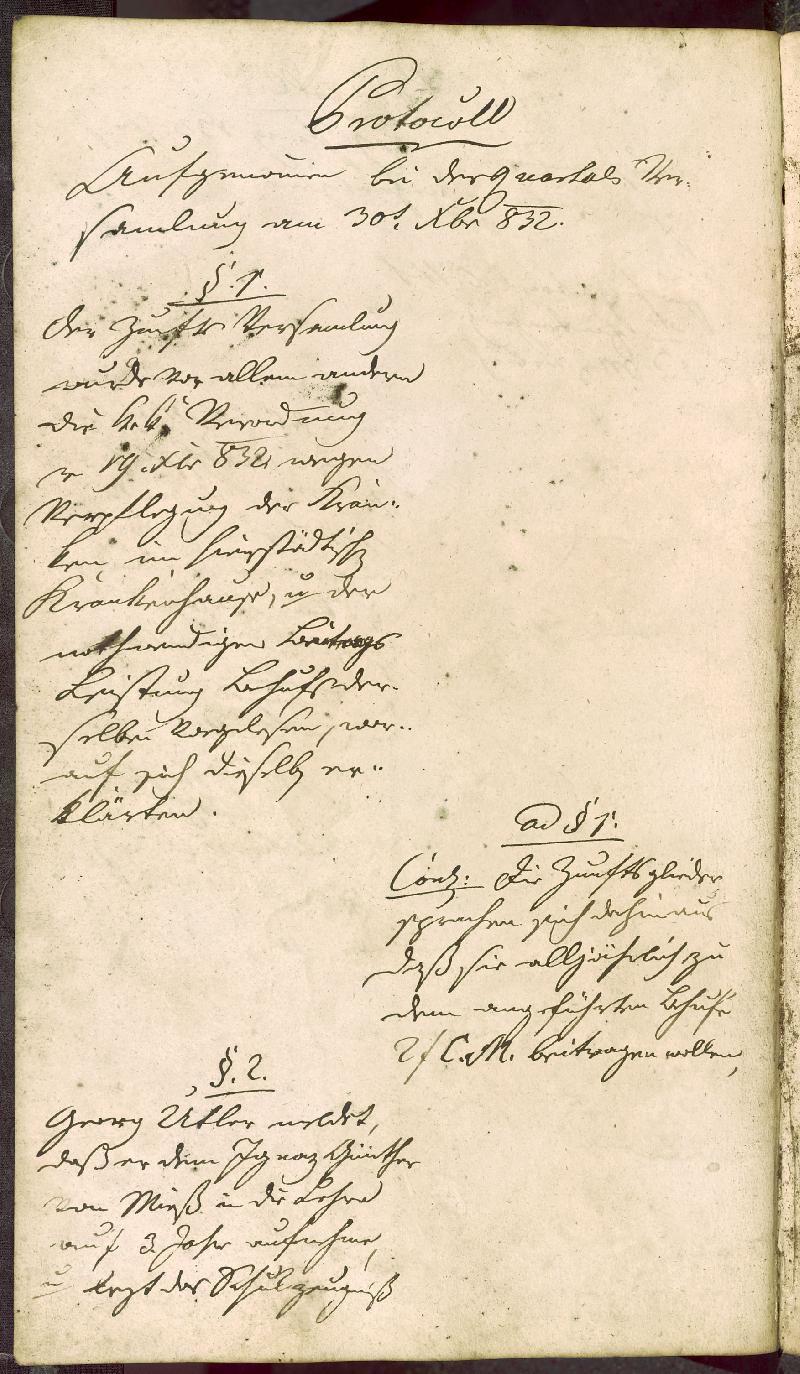 Protocoll
Aufgenomen bei der Quartals Ver-
samlung am 30t. Xbr 832.
§. 1.
Der Zunfts Versamlung
wurde vor allem andern
die k. k. Verordnung
v 19. Xbr 832 wegen
Verpflegung der Kran-
ken im hierstädtisch
Krankenhause, u der
nothwendigen Beitrags
Leistung Behufs der-
selben vorgelesen, wor-
auf sich dieselb er-
klärten.
ad § 1.
Concl: Die Zunftsglieder
sprachen sich dahin aus
daß sie alljährlich zu
dem angeführten Behufe
2 f C.M. beitragen wollen,
§. 2.
Georg Utler meldet,
daß er dem Ignaz Günther
von Mieß in die Lehre
auf 3 Jahr aufnehme,
u legt das Schulzeugniß